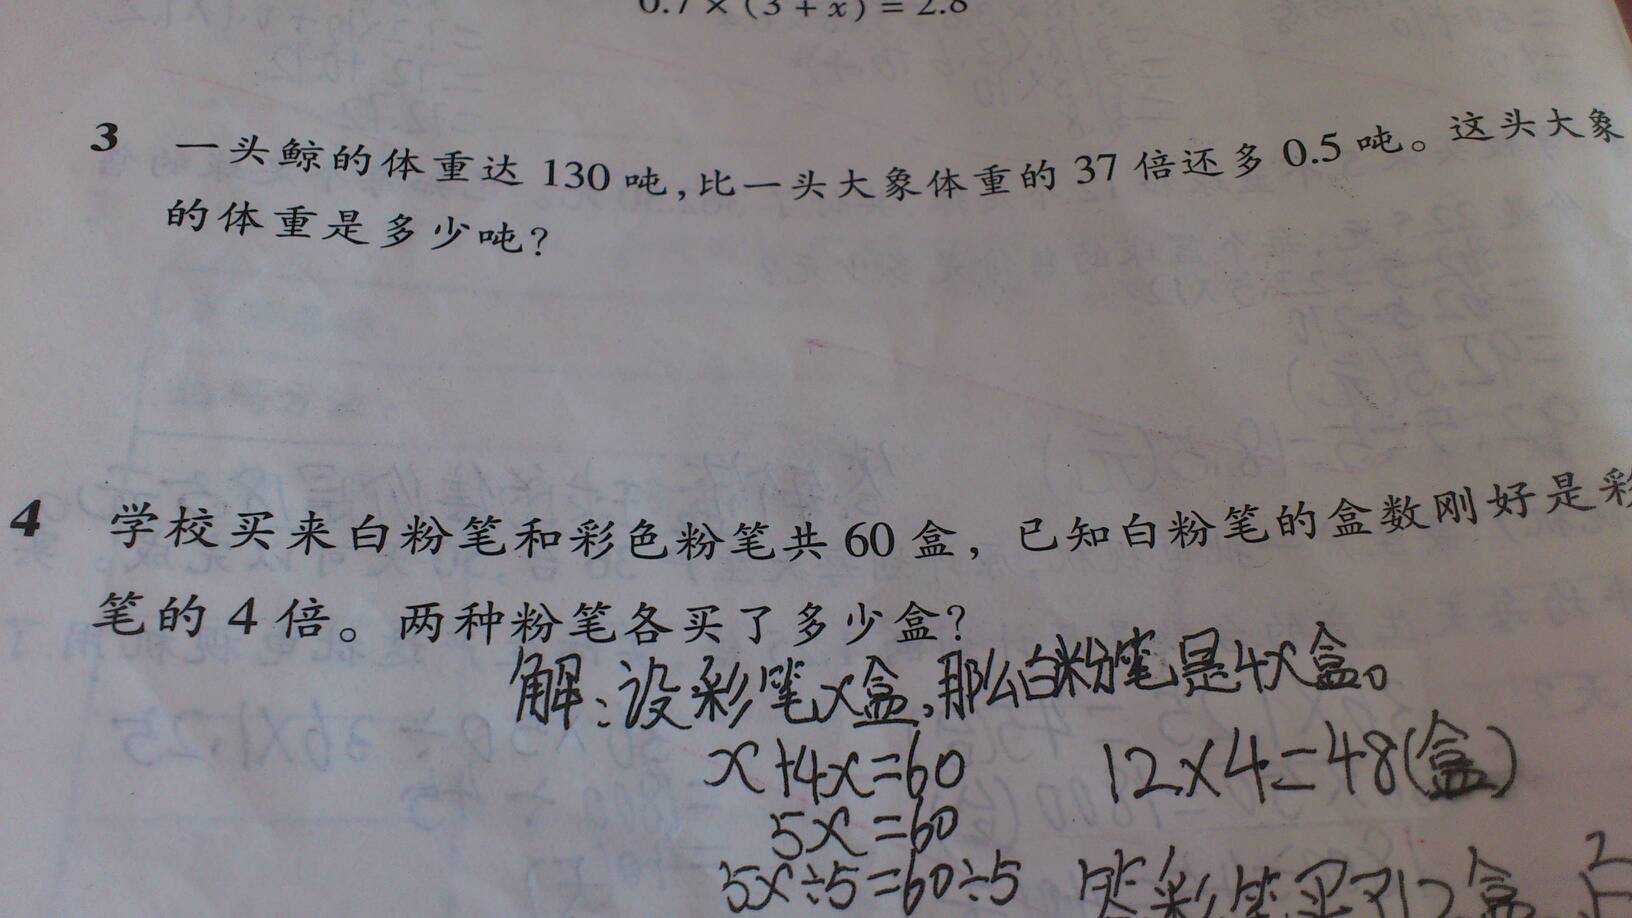 0.7 × (3 + x) = 2.8
3 一头鲸的体重达 130 吨，比一头大象体重的 37 倍还多 0.5 吨。这头大象
的体重是多少吨？
4 学校买来白粉笔和彩色粉笔共 60 盒，已知白粉笔的盒数刚好是彩
笔的 4 倍。两种粉笔各买了多少盒？
解：设彩笔x盒，那么白粉笔是4x盒。
x+4x=60 12×4=48(盒)
5x=60
5x÷5=60÷5 答彩笔买了12盒